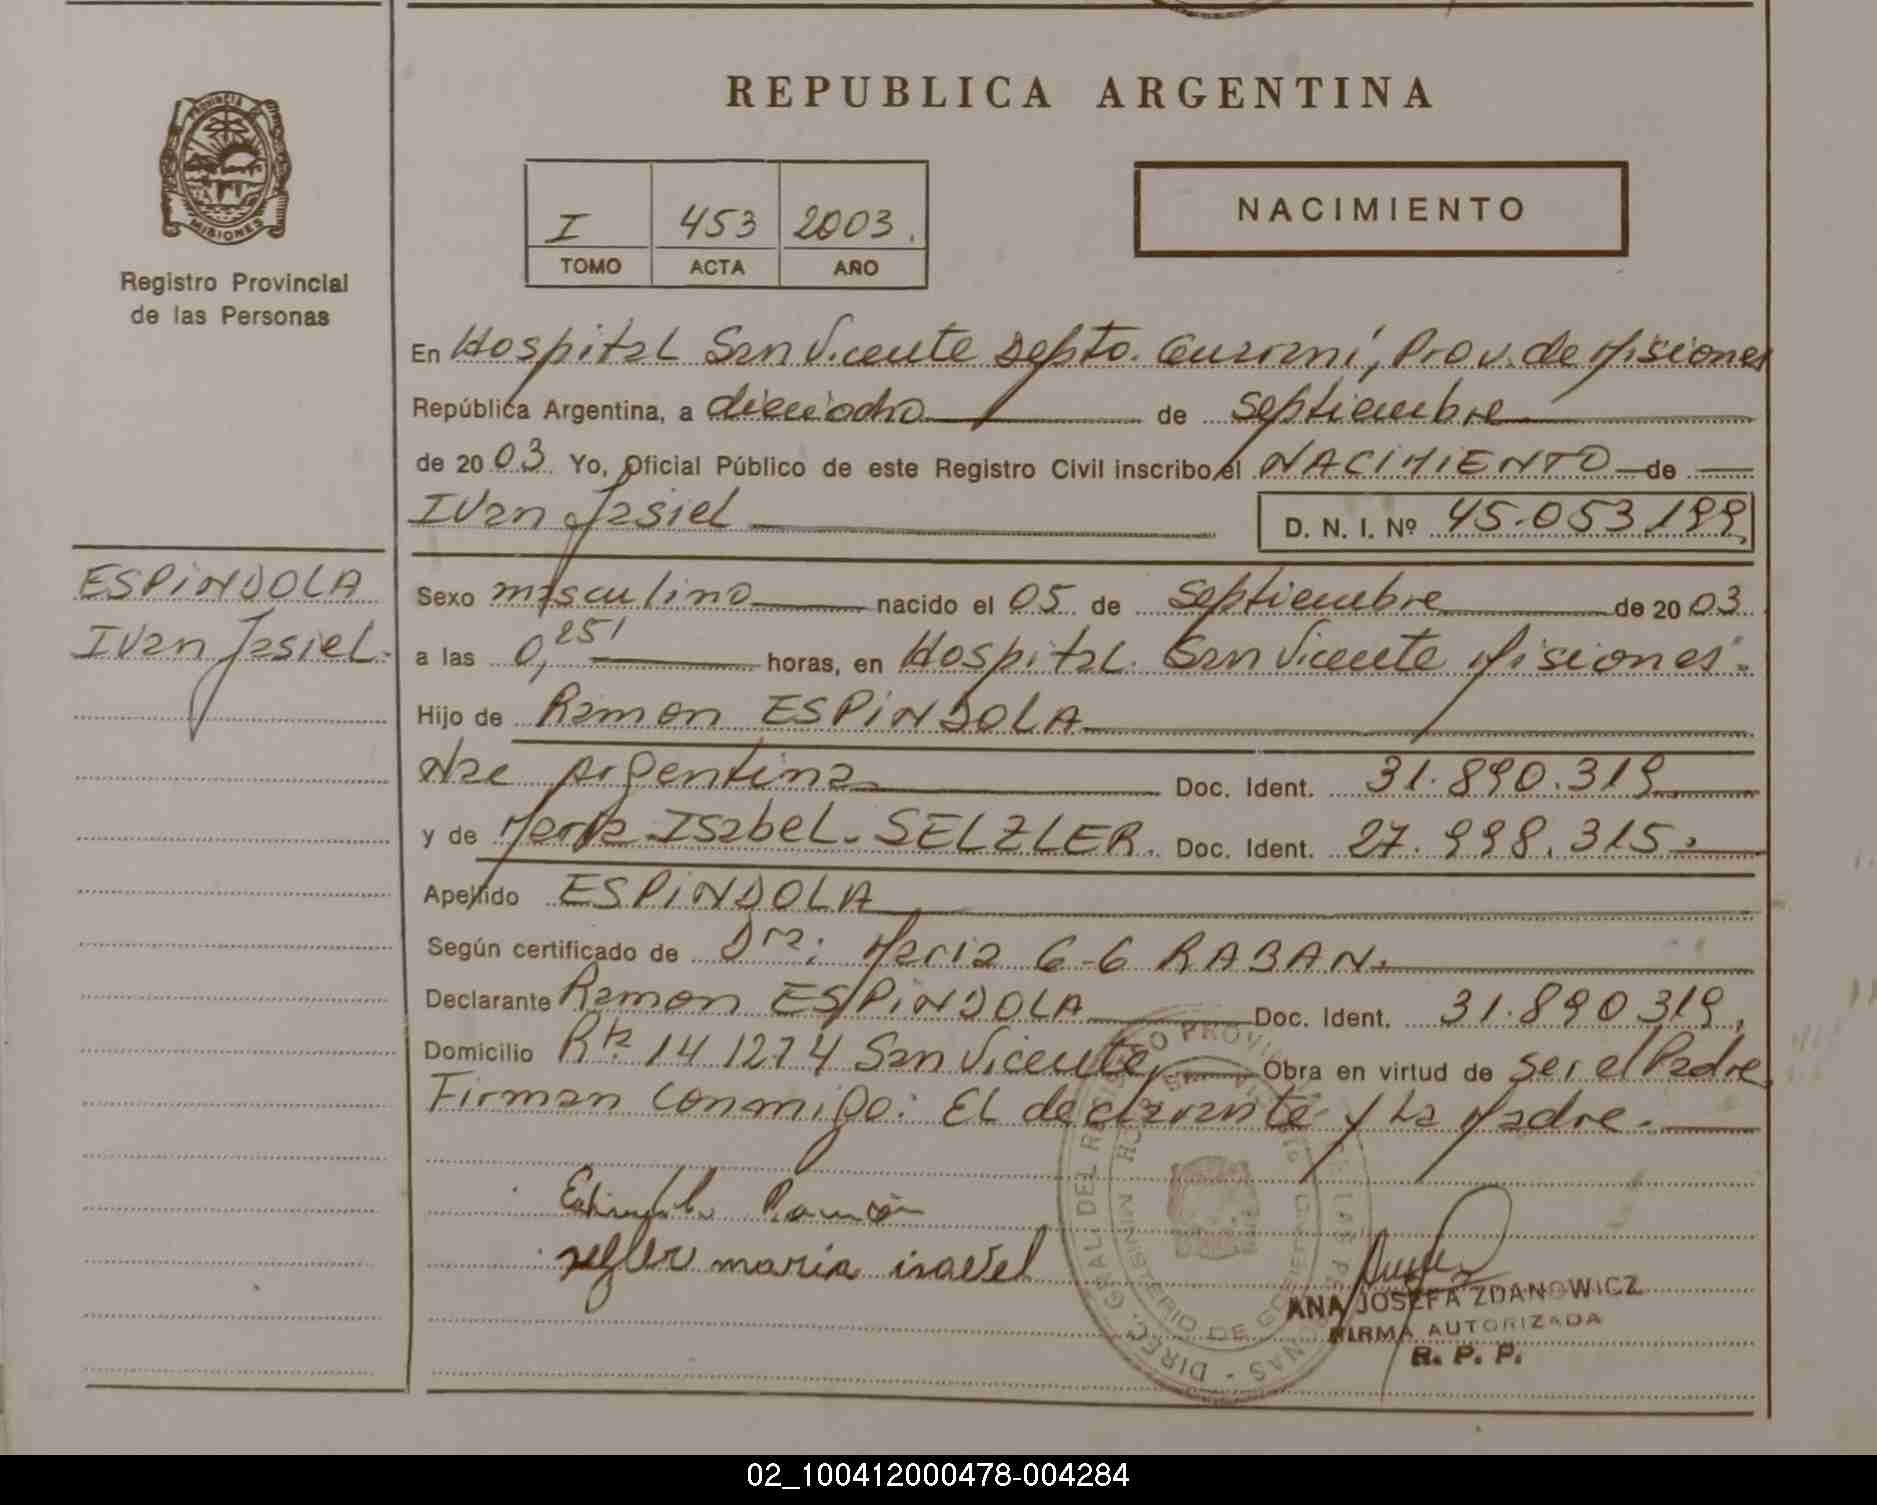 REPUBLICA ARGENTINA
PROVINCIA
MISIONES
Registro Provincial
de las Personas
I 453 2003.
TOMO ACTA AÑO
NACIMIENTO
En Hospital San Vicente Depto. Guaraní, Prov. de Misiones
República Argentina, a dieciocho de septiembre
de 2003 Yo, Oficial Público de este Registro Civil inscribo el NACIMIENTO de
Ivan Jasiel
D. N. I. Nº 45.053.199
ESPINDOLA
Ivan Jasiel.
Sexo masculino nacido el 05 de septiembre de 2003.
a las 0,25' horas, en Hospital San Vicente Misiones.
Hijo de Ramon ESPINDOLA
Nac Argentina Doc. Ident. 31.890.319
y de Maria Isabel SELZLER. Doc. Ident. 27.998.315.
Apellido ESPINDOLA
Según certificado de Dra: Maria G-G RABAN.
Declarante Ramon ESPINDOLA Doc. Ident. 31.890319.
Domicilio Rta 14 1274 San Vicente, Obra en virtud de ser el Padre
Firman conmigo: El declarante y La Madre.
Ramón
maria isavel
ANA JOSEFA ZDANOWICZ
FIRMA AUTORIZADA
R. P. P.
02_100412000478-004284